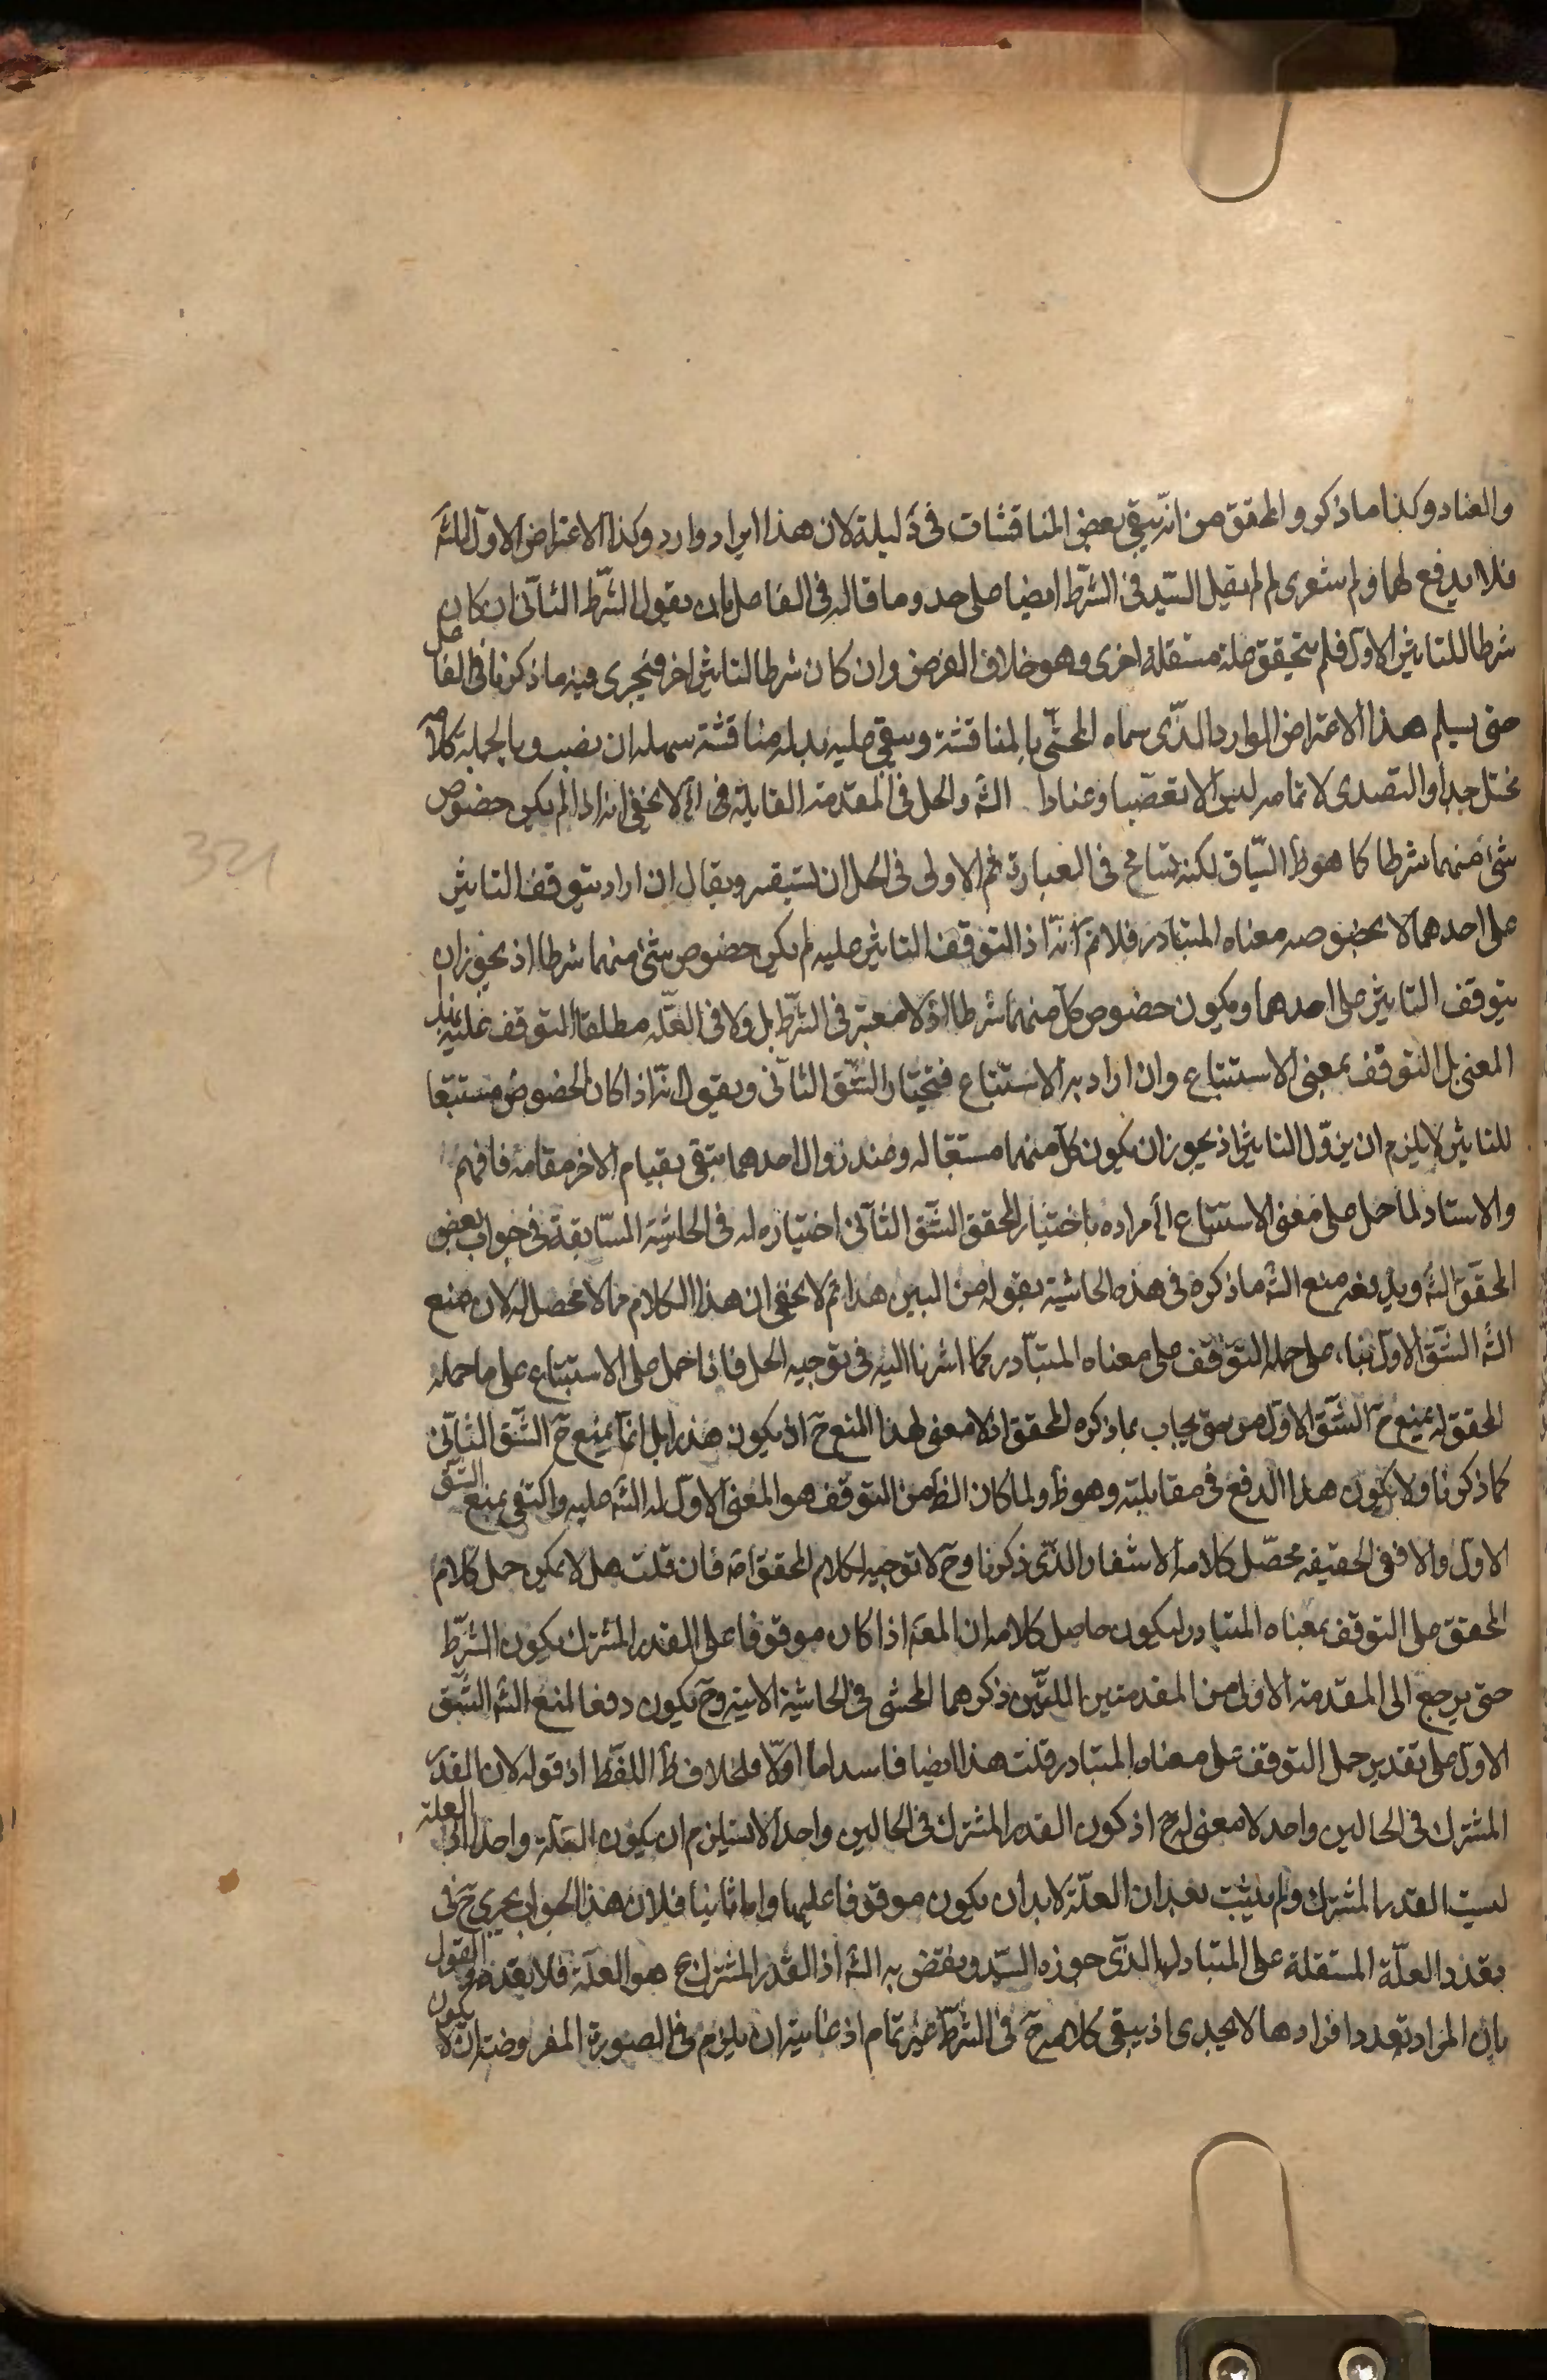 والعناد وكذا ما ذكره المحقق من انّه يبقى بعض المناقشات فى دليله لان هذا ايراد وارد وكذا الاعتراض الاول للشه
فلا يدفع لها ولم شعرى لم لم يقل السّيد فى الشّرط ايضا على حد وما قاله فى الفاعل بان يقول الشّرط الثّانى ان كان
شرطا للتاثير الاول فلم يتحقق علة مستقلة اخرى وهو خلاف الفرض وان كان شرطا لتاثير اخر فيجرى فيه ما ذكرنا فى الفاعل
حتى يسلم هذا الاعتراض الوارد الذّى سماه المحشّى بالمناقشة ويبقى عليه بدله مناقشة سهلة ان نصب وبالجملة كلامه
مختل جدا والتصدى لاتمامه ليس الا تعصّبا وعنادا الشه والحل فى المقدمة القايلة فى لا يخفى انه اذا لم يكن خصوص
شئ منهما شرطا كما هو ظ السّياق لكنه تسامح فى العبارة ثم الاولى فى الحل ان يستيقسر ويقال ان اراد بتوقف التاثير
على احدهما لا بخصوصه معناه المتبادر فلا نم انّه اذ التوقف التاثير عليه لم يكن خصوص شئ منهما شرطا اذ يجوز ان
يتوقف التاثير على احدهما ويكون خصوص كل منهما شرطا اذ لا معتبر فى الشّرط بل ولا فى العلّة مطلقا التوقف عليه بذلك
المعنى بل التوقّف بمعنى الاستتباع وان اراد به الاستتباع فنختار الشّق الثانى ونقول انّه اذا كان الخصوص مستتبعا
للتاثير لا يلزم ان يزوّل التاثير اذ يجوز ان يكون كل منهما مستتبعا له وعند زوال احدهما يبقى بقيام الاخر مقامه فافهم
والاستاد لما حمل على معنى الاستتباع اى مراده باختيار المحقق الشّق الثّانى اختياره له فى الحاشية السّابقة فى جواب بعض
المحقق الشه ويدفعه منع الشه ما ذكره فى هذه الحاشية بقوله من البين هذا ثم لا يخفى ان هذا الكلام مما لا محصل له لان منع
الشه الشّق الاول بناء على حمله التوقّف على معناه المتبادر كما اشرنا اليه فى توجيه الحل فاذا حمل على الاستتباع على ما حمله
المحقق له يمنع ح الشّق الاول حتى يجاب بما ذكره المحقق اذ لا معنى لهذا المنع ح اذ يكون هذرا بل انّما يمنع ح الشّق الثّانى
كما ذكرنا ولا يكون هذا الدفع فى مقابلته وهو ظ ولما كان الظ من التوقف هو المعنى الاول له الشه عليه واكتفى بمنع الشّق
الاول والا ففى الحقيقة محصّل كلامه الاستفسار الذّى ذكرنا وح لا توجيه لكلام المحقق اصه فان قلت هل لا يمكن حمل كلام
المحقق على التوقف بمعناه المتبادر ليكون حاصل كلامه ان المعه اذا كان موقوفا على القدر المشترك يكون الشرّط
حتى يرجع الى المقدمة الاولى من المقدمتين اللتّين ذكرهما المحشى فى الحاشية الاتية وح يكون دفعا لمنع الشه الشّق
الاول على تقدير حمل التوقف على معناه المتبادر قلت هذا ايضا فاسد اما اوّلا فلخلاف ظ اللفّظ اذ قوله لان القدر
المشترك فى الحالين واحد لا معنى له ح اذ كون القدر المشترك فى الحالين واحدا لا يستلزم ان يكون العلّة واحدا اذ العلة
ليست القدر المشترك ولم يثبت بعد ان العلّة لا بد ان يكون موقوفا عليها واما ثانيا فلان هذا الجواب يجرى ح فى
تعدد العلّة المستقلة على المتبادل الذّى جوزه السّيد ونقض به الشه اذ القدر المشترك ح هو العلّة فلا تعدد والقول
بان المراد تعدد افرادها لا يجدى اذ يبقى كلامه ح فى الشّرط غير تمام اذ غايته ان يلزم فى الصورة المفروضة ان لا يكون